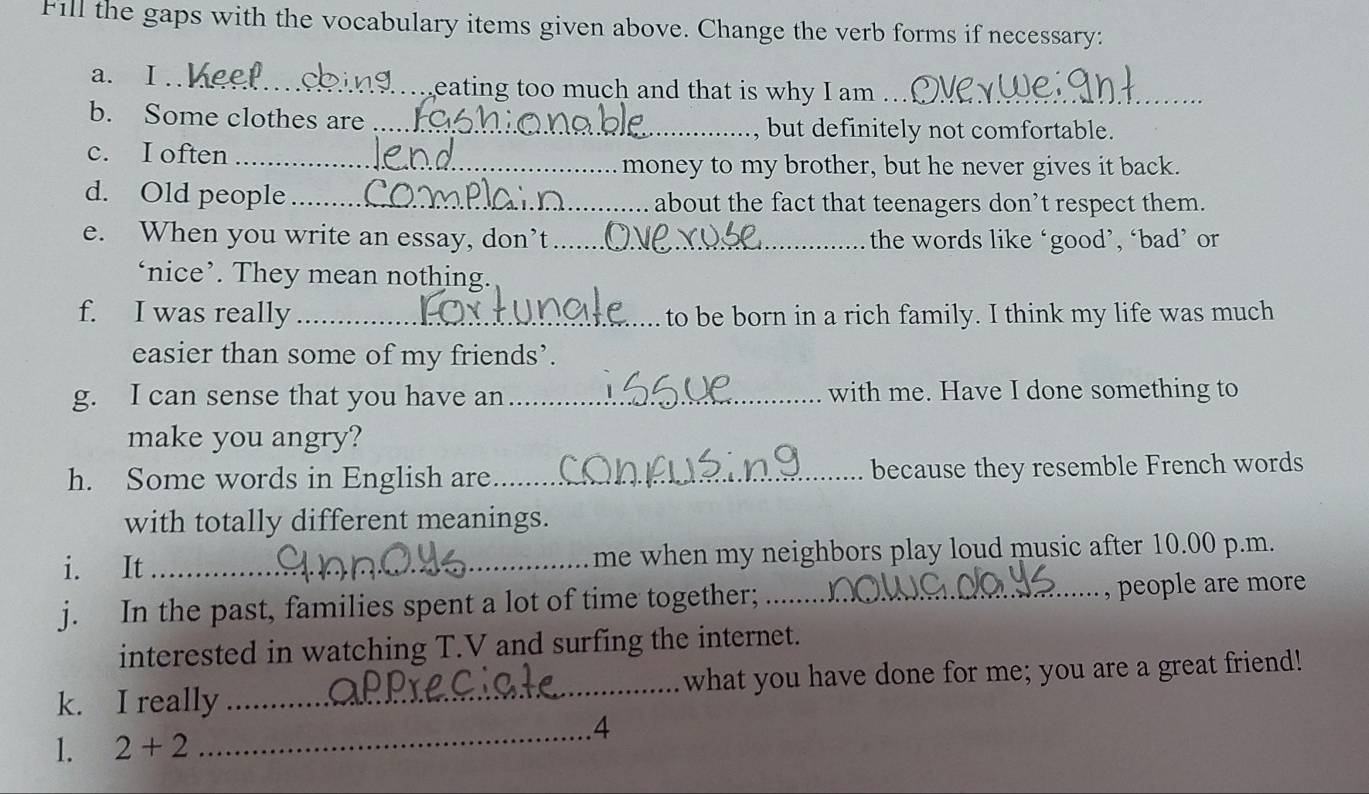 Fill the gaps with the vocabulary items given above. Change the verb forms if necessary:
a. I ..Keep....cbing.....eating too much and that is why I am ...overweight........
b. Some clothes are .....Fashionable............., but definitely not comfortable.
c. I often ................lend....................money to my brother, but he never gives it back.
d. Old people.........complain...........about the fact that teenagers don't respect them.
e. When you write an essay, don't......overuse..............the words like 'good', 'bad' or
'nice'. They mean nothing.
f. I was really ...............Fortunate.....to be born in a rich family. I think my life was much
easier than some of my friends'.
g. I can sense that you have an............issue............with me. Have I done something to
make you angry?
h. Some words in English are........confusing........ because they resemble French words
with totally different meanings.
i. It ..............annoys...............me when my neighbors play loud music after 10.00 p.m.
j. In the past, families spent a lot of time together; .......nowadays......, people are more
interested in watching T.V and surfing the internet.
k. I really ............appreciate..............what you have done for me; you are a great friend!
l. 2 + 2 ................................................4